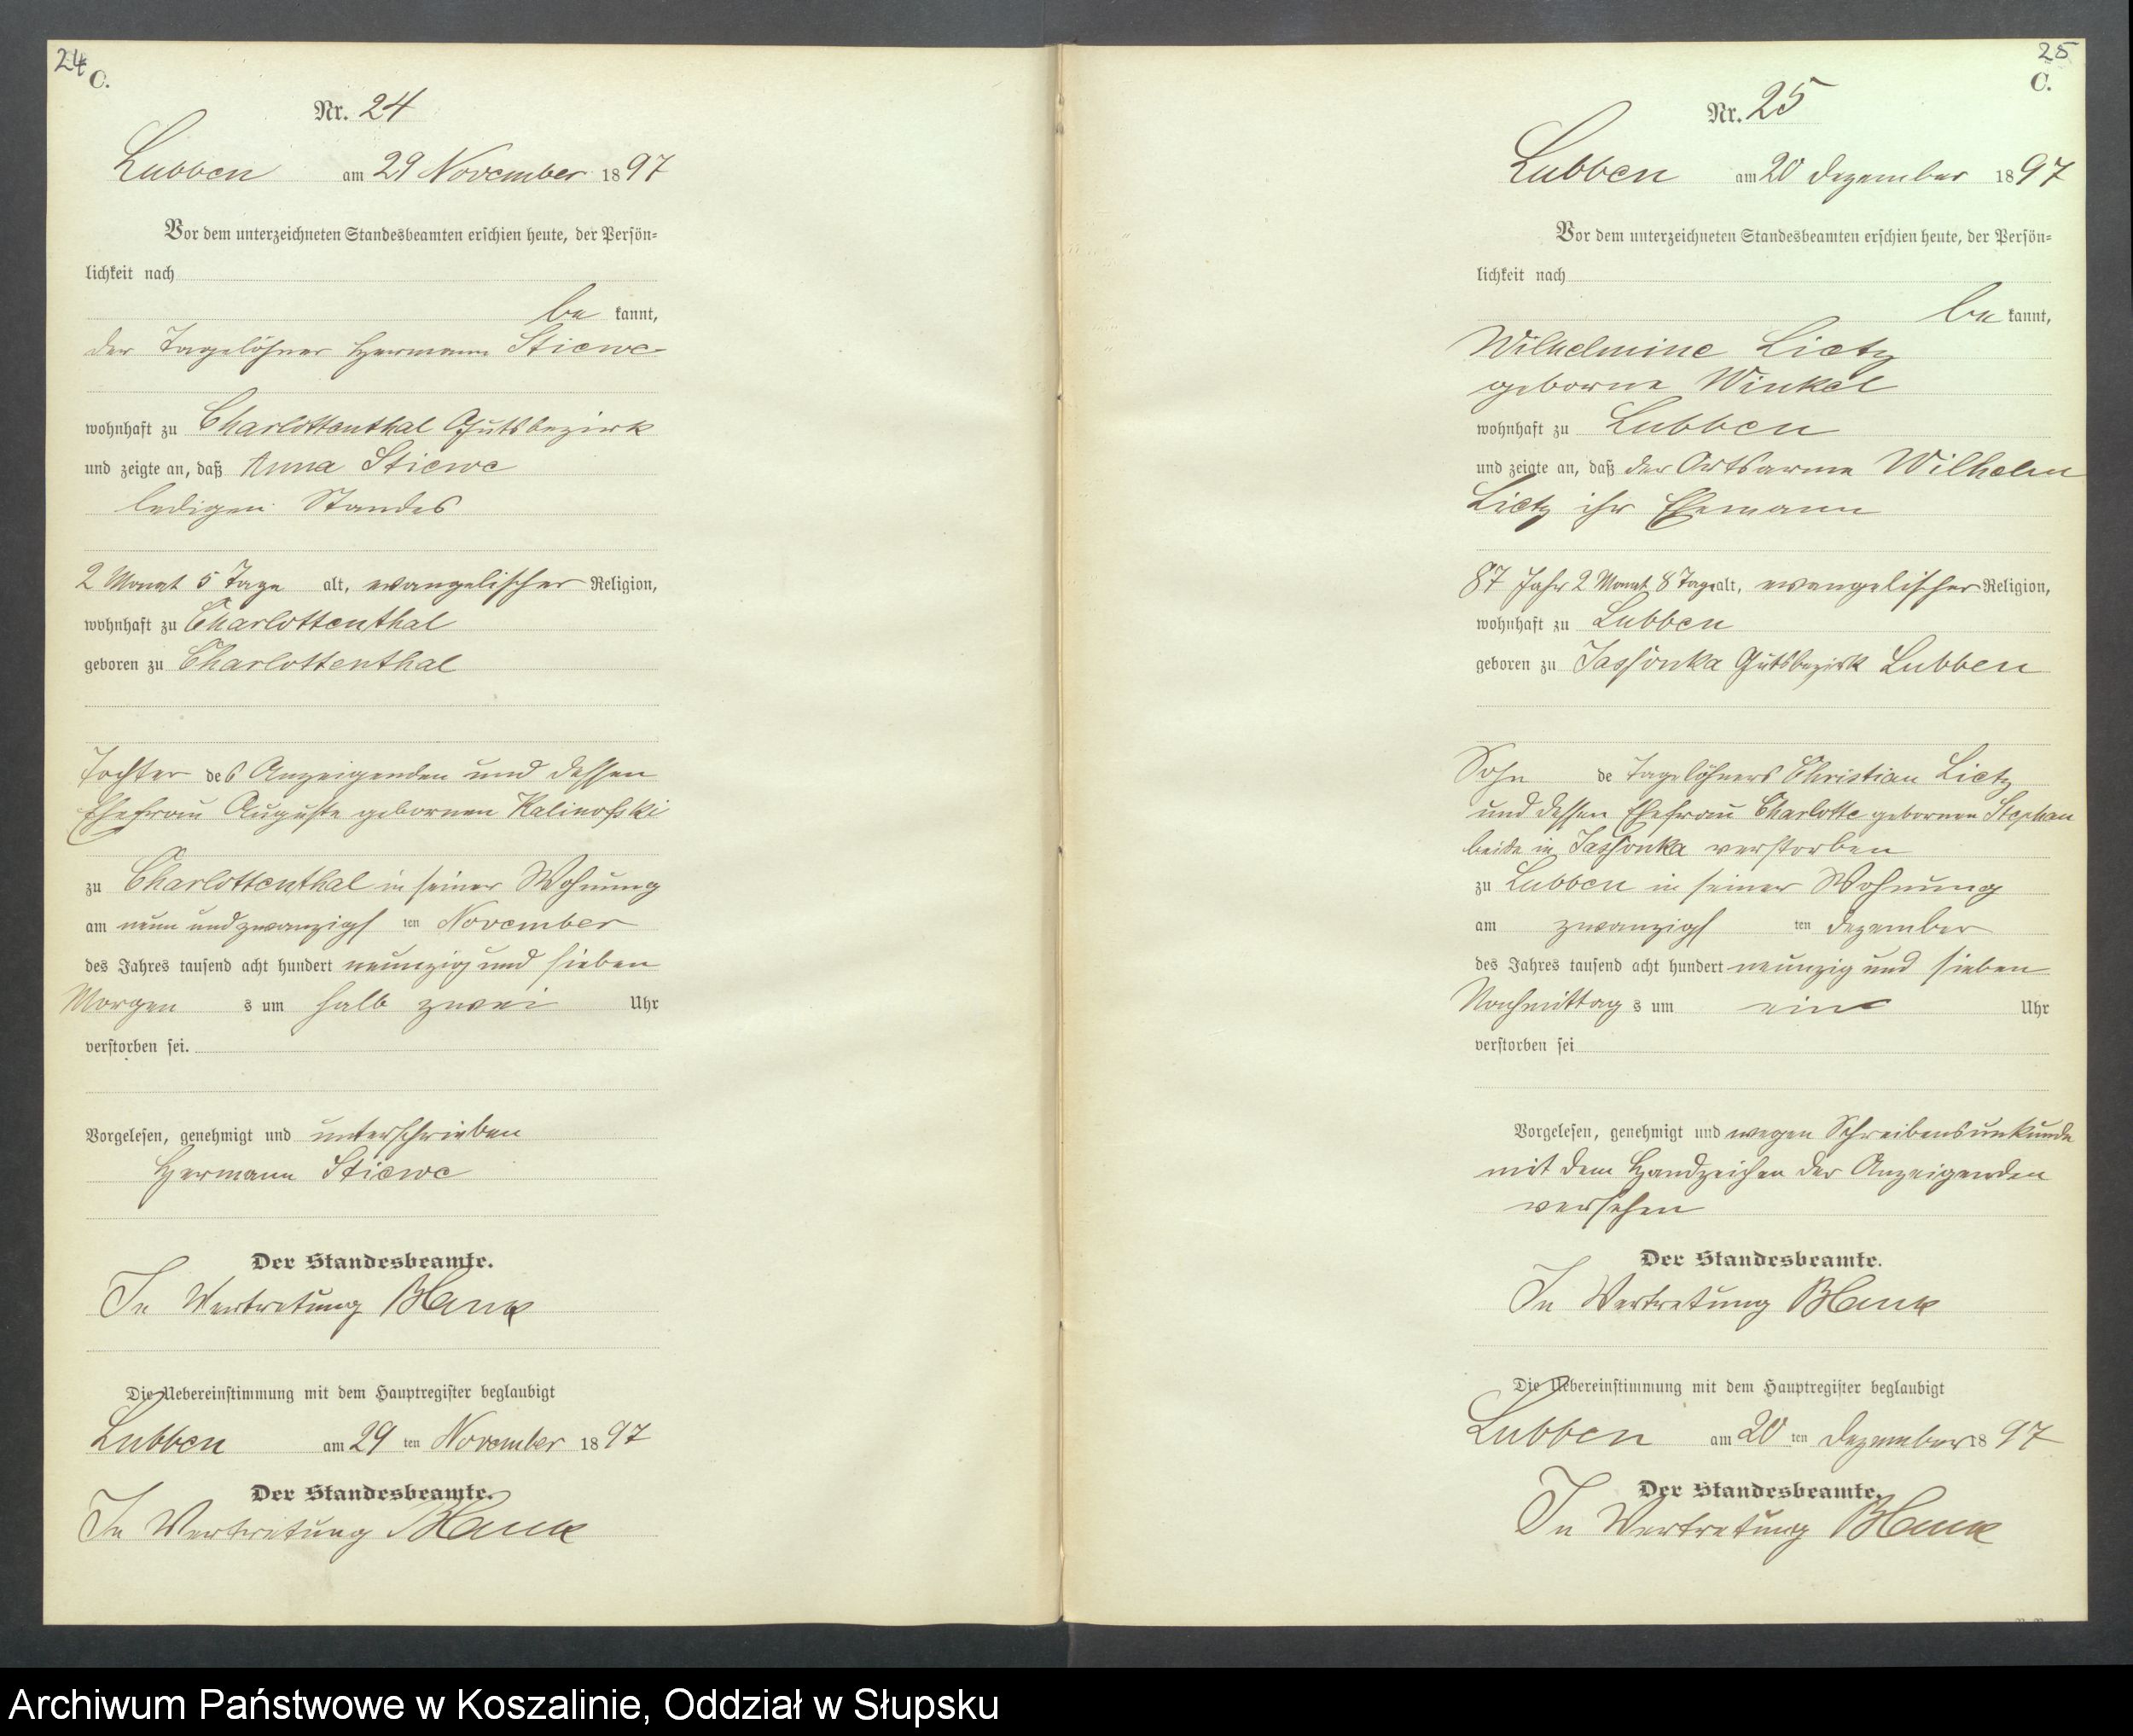 24
C.
Nr. 24
Lubben am 29 November 1897
Vor dem unterzeichneten Standesbeamten erschien heute, der Persön-
lichkeit nach
be kannt,
der Tagelöhner Hermann Stiewe
wohnhaft zu Charlottenthal Gutsbezirk
und zeigte an, daß Anna Stiewe
ledigen Standes
2 Monat 5 Tage alt, evangelischer Religion,
wohnhaft zu Charlottenthal
geboren zu Charlottenthal
Tochter des Anzeigenden und dessen
Ehefrau Auguste gebornen Kalinofski
zu Charlottenthal in seiner Wohnung
am neun und zwanzigs ten November
des Jahres tausend acht hundert neunzig und sieben
Morgen s um halb zwei Uhr
verstorben sei.
Vorgelesen, genehmigt und unterschrieben
Hermann Stiewe
Der Standesbeamte.
In Vertretung Blank
Die Uebereinstimmung mit dem Hauptregister beglaubigt
Lubben am 29 ten November 1897
Der Standesbeamte.
In Vertretung Blank
25
C.
Nr. 25
Lubben am 20 Dezember 1897
Vor dem unterzeichneten Standesbeamten erschien heute, der Persön-
lichkeit nach
be kannt,
Wilhelmine Lietz
geborne Winkel
wohnhaft zu Lubben
und zeigte an, daß der Ortsarme Wilhelm
Lietz ihr Ehemann
87 Jahr 2 Monat 8 Tage alt, evangelischer Religion,
wohnhaft zu Lubben
geboren zu Jassonka Gutsbezirk Lubben
Sohn de Tagelöhners Christian Lietz
und dessen Ehefrau Charlotte gebornen Stephan
beide in Jassonka verstorben
zu Lubben in seiner Wohnung
am zwanzigs ten Dezember
des Jahres tausend acht hundert neunzig und sieben
Nachmittag s um ein Uhr
verstorben sei
Vorgelesen, genehmigt und wegen Schreibensunkunde
mit dem Handzeichen der Anzeigenden
versehen
Der Standesbeamte.
In Vertretung Blank
Die Uebereinstimmung mit dem Hauptregister beglaubigt
Lubben am 20 ten Dezember 1897
Der Standesbeamte.
In Vertretung Blank
Archiwum Państwowe w Koszalinie, Oddział w Słupsku